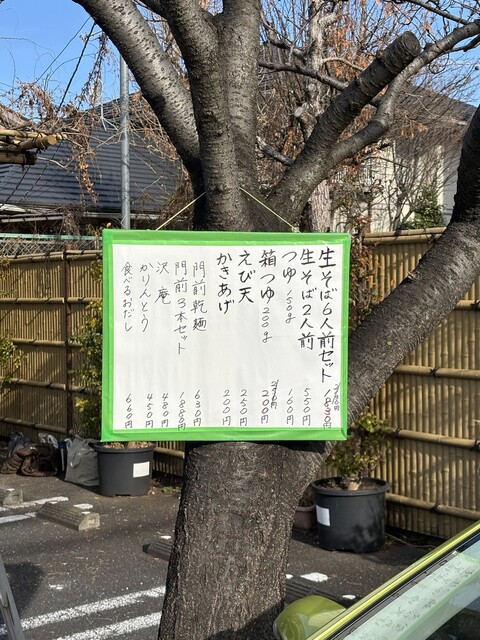 生そば6人前セット 1830円
生そば2人前 550円
つゆ 150g 160円
箱つゆ 200g 200円
えび天 250円
かきあげ 200円
門前乾麺 630円
門前3本セット 1880円
沢庵 480円
かりんとう 450円
食べるおだし 660円